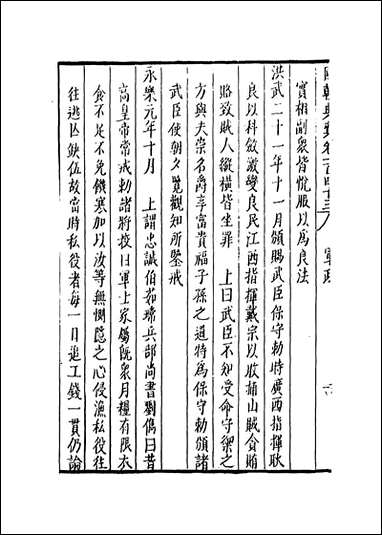 國朝典彙卷一百四十三 軍政
實相副衆皆悅服以為良法
洪武二十一年十一月頒賜武臣保守勅時廣西指揮耿
良以科斂激變良民江西指揮戴宗以收捕山賊貪賄
賂致賊人縱橫皆坐罪 上曰武臣不知受命守禦之
方與夫崇名爵享富貴福子孫之道特為保守勅頒諸
武臣使朝夕覽觀知所鑒戒
永樂元年十月 上謂忠誠伯茹瑺兵部尚書劉儁曰昔
高皇帝常戒勅諸將校曰軍士家屬既衆月糧有限衣
食不足不免饑寒加以汝等無憫隱之心侵漁私役往
往逃亡缺伍故當時私役者每一日追工錢一貫仍論